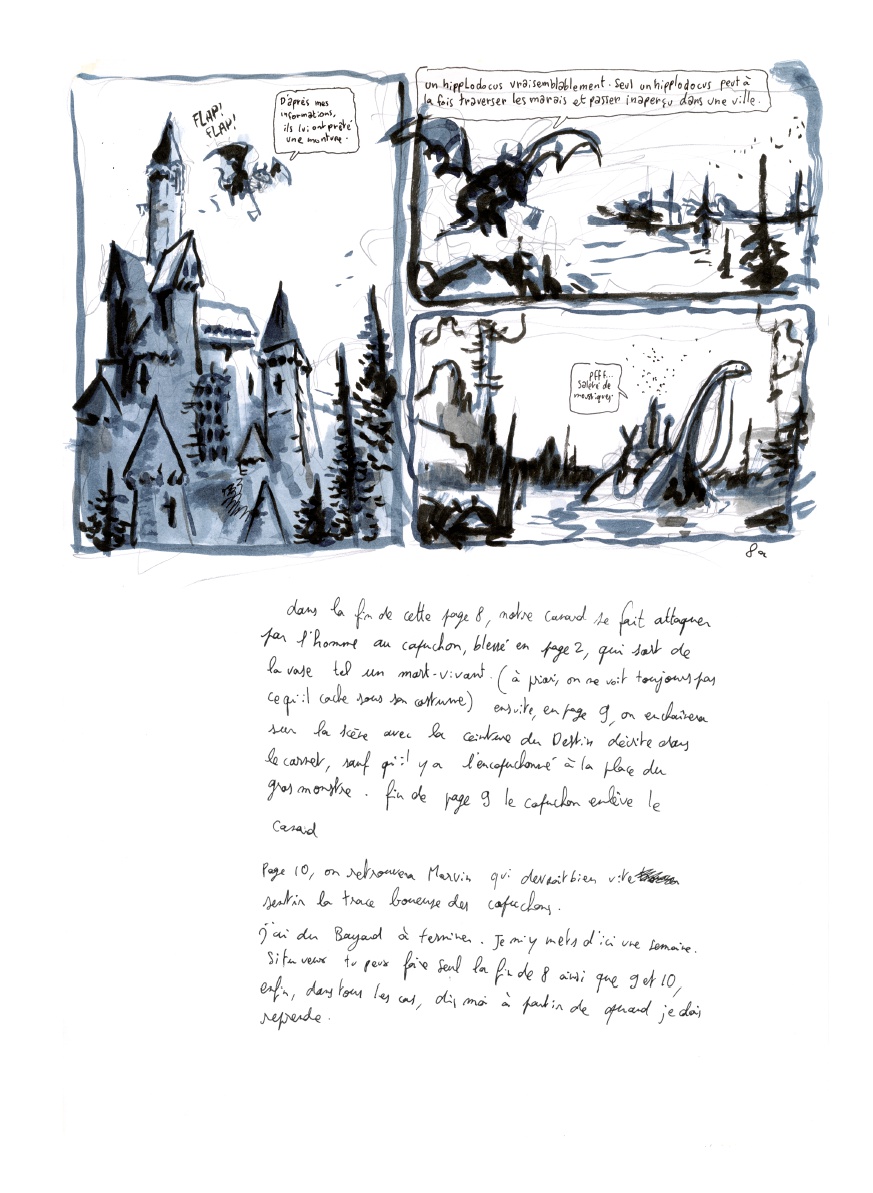 FLAP!
FLAP!
D'après mes
informations,
ils lui ont prêté
une monture.
un hipplodocus vraisemblablement. Seul un hipplodocus peut à
la fois traverser les marais et passer inaperçu dans une ville.
pfff...
Saleté de
moustiques.
8a
dans la fin de cette page 8, notre canard se fait attaquer
par l'homme au capuchon, blessé en page 2, qui sort de
la vase tel un mort-vivant. (à priori, on ne voit toujours pas
ce qu'il cache sous son costume) ensuite, en page 9, on enchainera
sur la scène avec la ceinture du Destin décrite dans
le carnet, sauf qu'il y a l'encapuchonné à la place du
gros monstre. fin de page 9 le capuchon enlève le
canard
Page 10, on retrouvera Marvin qui devrait bien vite
sentir la trace boueuse des capuchons.
j'ai du Bayard à terminer. Je m'y mets d'ici une semaine.
Si tu veux tu peux faire seul la fin de 8 ainsi que 9 et 10,
enfin, dans tous les cas, dis moi à partir de quand je dois
reprendre.